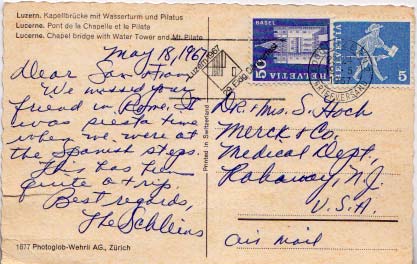 Luzern. Kapellbrücke mit Wasserturm und Pilatus
Lucerne. Pont de la Chapelle et le Pilate
Lucerne. Chapel bridge with Water Tower and Mt. Pilate
May 18, 196
Dear
We missed your
friend in Rome. It
was siesta time
when we were at
the Spanish steps.
This has been
quite a trip.
Best regards,
The Schleins
1677 Photoglob-Wehrli AG., Zürich
Printed in Switzerland
BASEL
50
HELVETIA
HELVETIA
5
Dr. & Mrs. S. Hoch
Merck & Co,
Medical Dept,
Rahway, N.J.
U.S.A.
air mail